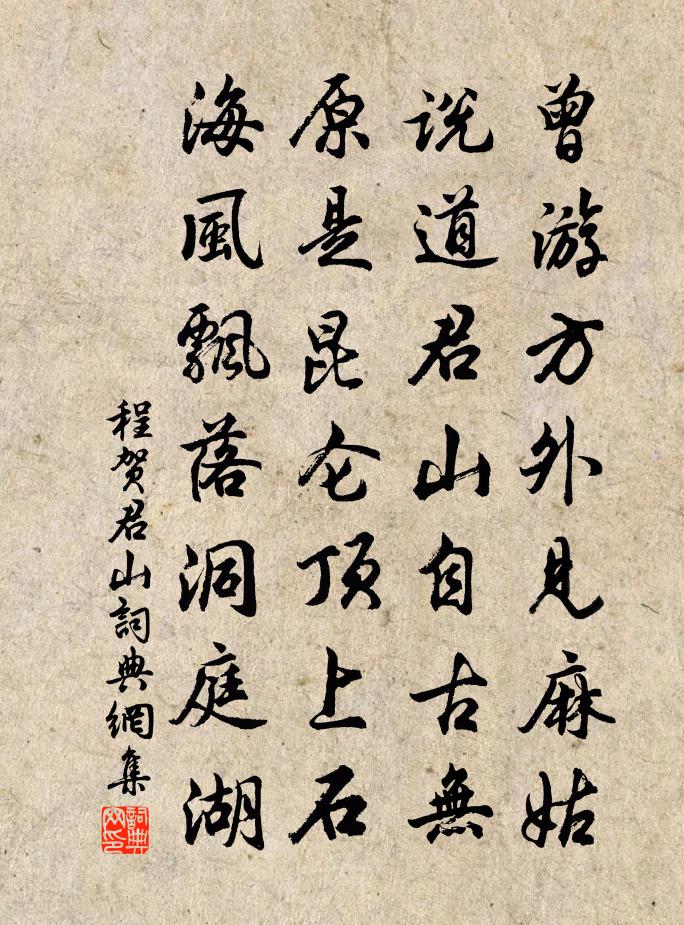 曾游方外見麻姑
説道君山自古無
原是昆仑顶上石
海風飄落洞庭湖
程贺君山詞典網集
詞典網印